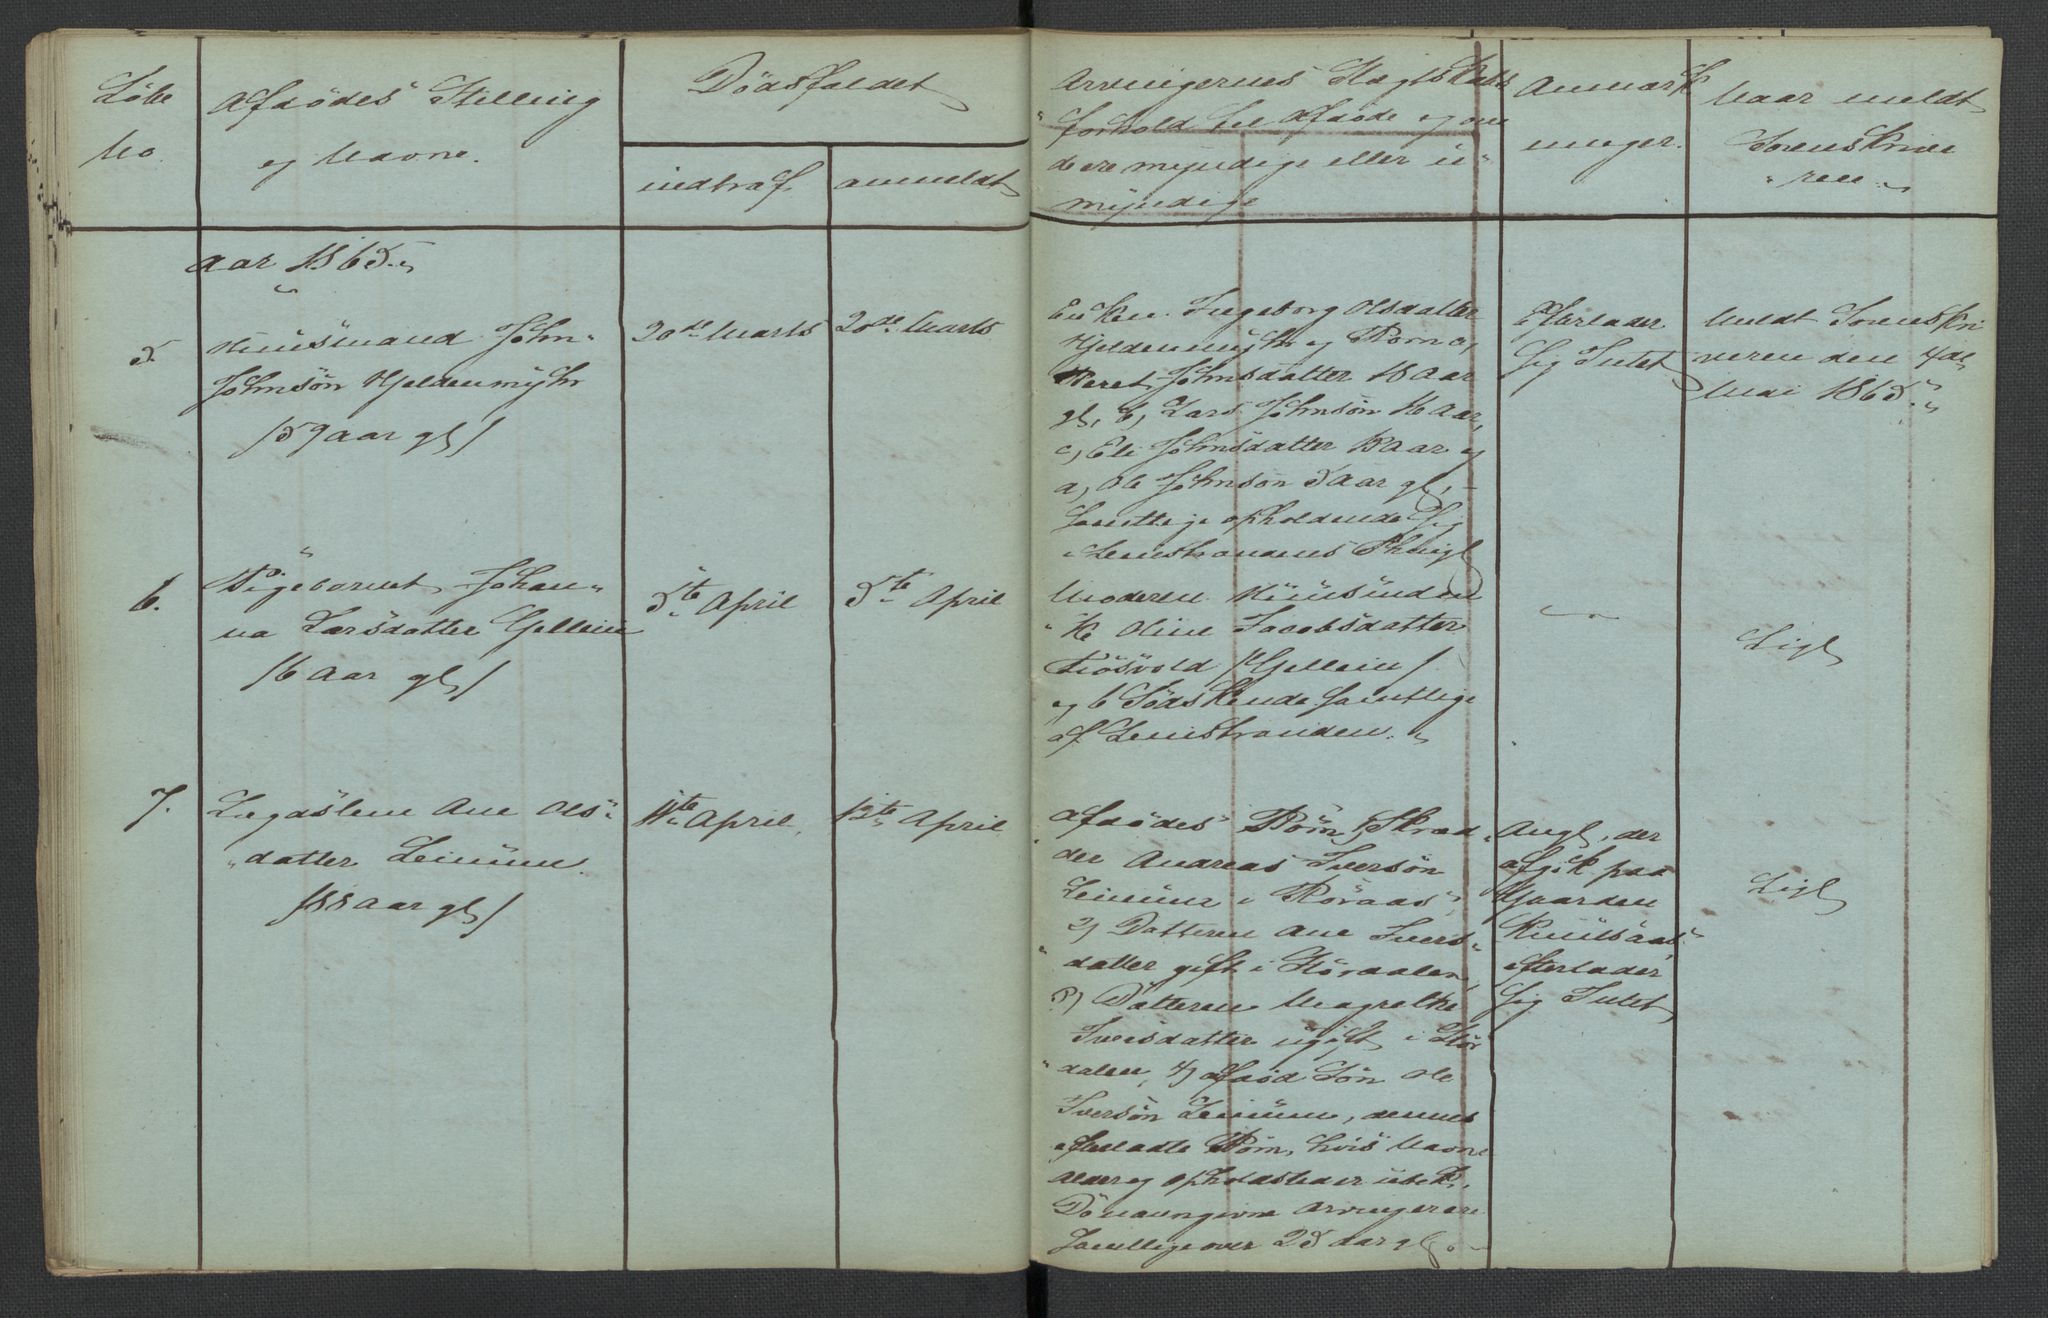 Löbe
No.
Afdödes Stilling
og Navne.
Dödsfaldet
indtraf.
anmeldt
Arvingernes Slægtskabs
forhold til Afdöde og om
de ere myndige eller u-
myndige
Anmærk
ninger.
Naar meldt
Sorenskrive
ren
Aar 1865.
5.
Huusmand John
Johnsön Hjeldenmyhr
/59 Aar gl/
20de Marts
20de Marts
Enken Ingeborg Olsdatter
Hjeldenmyhr og Börn a,
Beret Johnsdatter 18 Aar
gl, b, Lars Johnsön 16 Aar,
c, Eli Johnsdatter 13 Aar og
d, Ole Johnsön 5 Aar gl,
samtlige opholdende sig
i Leinstrandens Thingl
Efterlader
sig Intet
Meldt Sorenskri
veren den 4de
Mai 1865.
6.
Pigebarnet Johan-
na Larsdatter Gjellein
/6 Aar gl/
5te April
5te April
Moderen Huusinden
ke Oline Jacobsdatter
Fiösvold /Gjellein/
og 6 Södskende samtlige
af Leinstranden.
Ligl
7.
Lægdslem Ane Ols-
datter Leinum.
/88 Aar gl/
11te April
12te April
Afdödes Börn 1, Skræd-
der Andreas Iversön
Leinum i Röraas,
2) Datteren Ane Ivers-
datter gift i Störaalen,
3) Datteren Magrethe
Iversdatter ugift i Stör
dalen, 4) Afdöd Sön Ole
Iversön Leinum, dennes
efterladte Börn, hvis Navne
Alder og Opholdssteder ubek.
De navngivne Arvinger ere
samtlige over 25 Aar gl.
Angl, der
afgik paa
Gaarden
Kuulsaas,
efterlader
sig Intet
Ligl